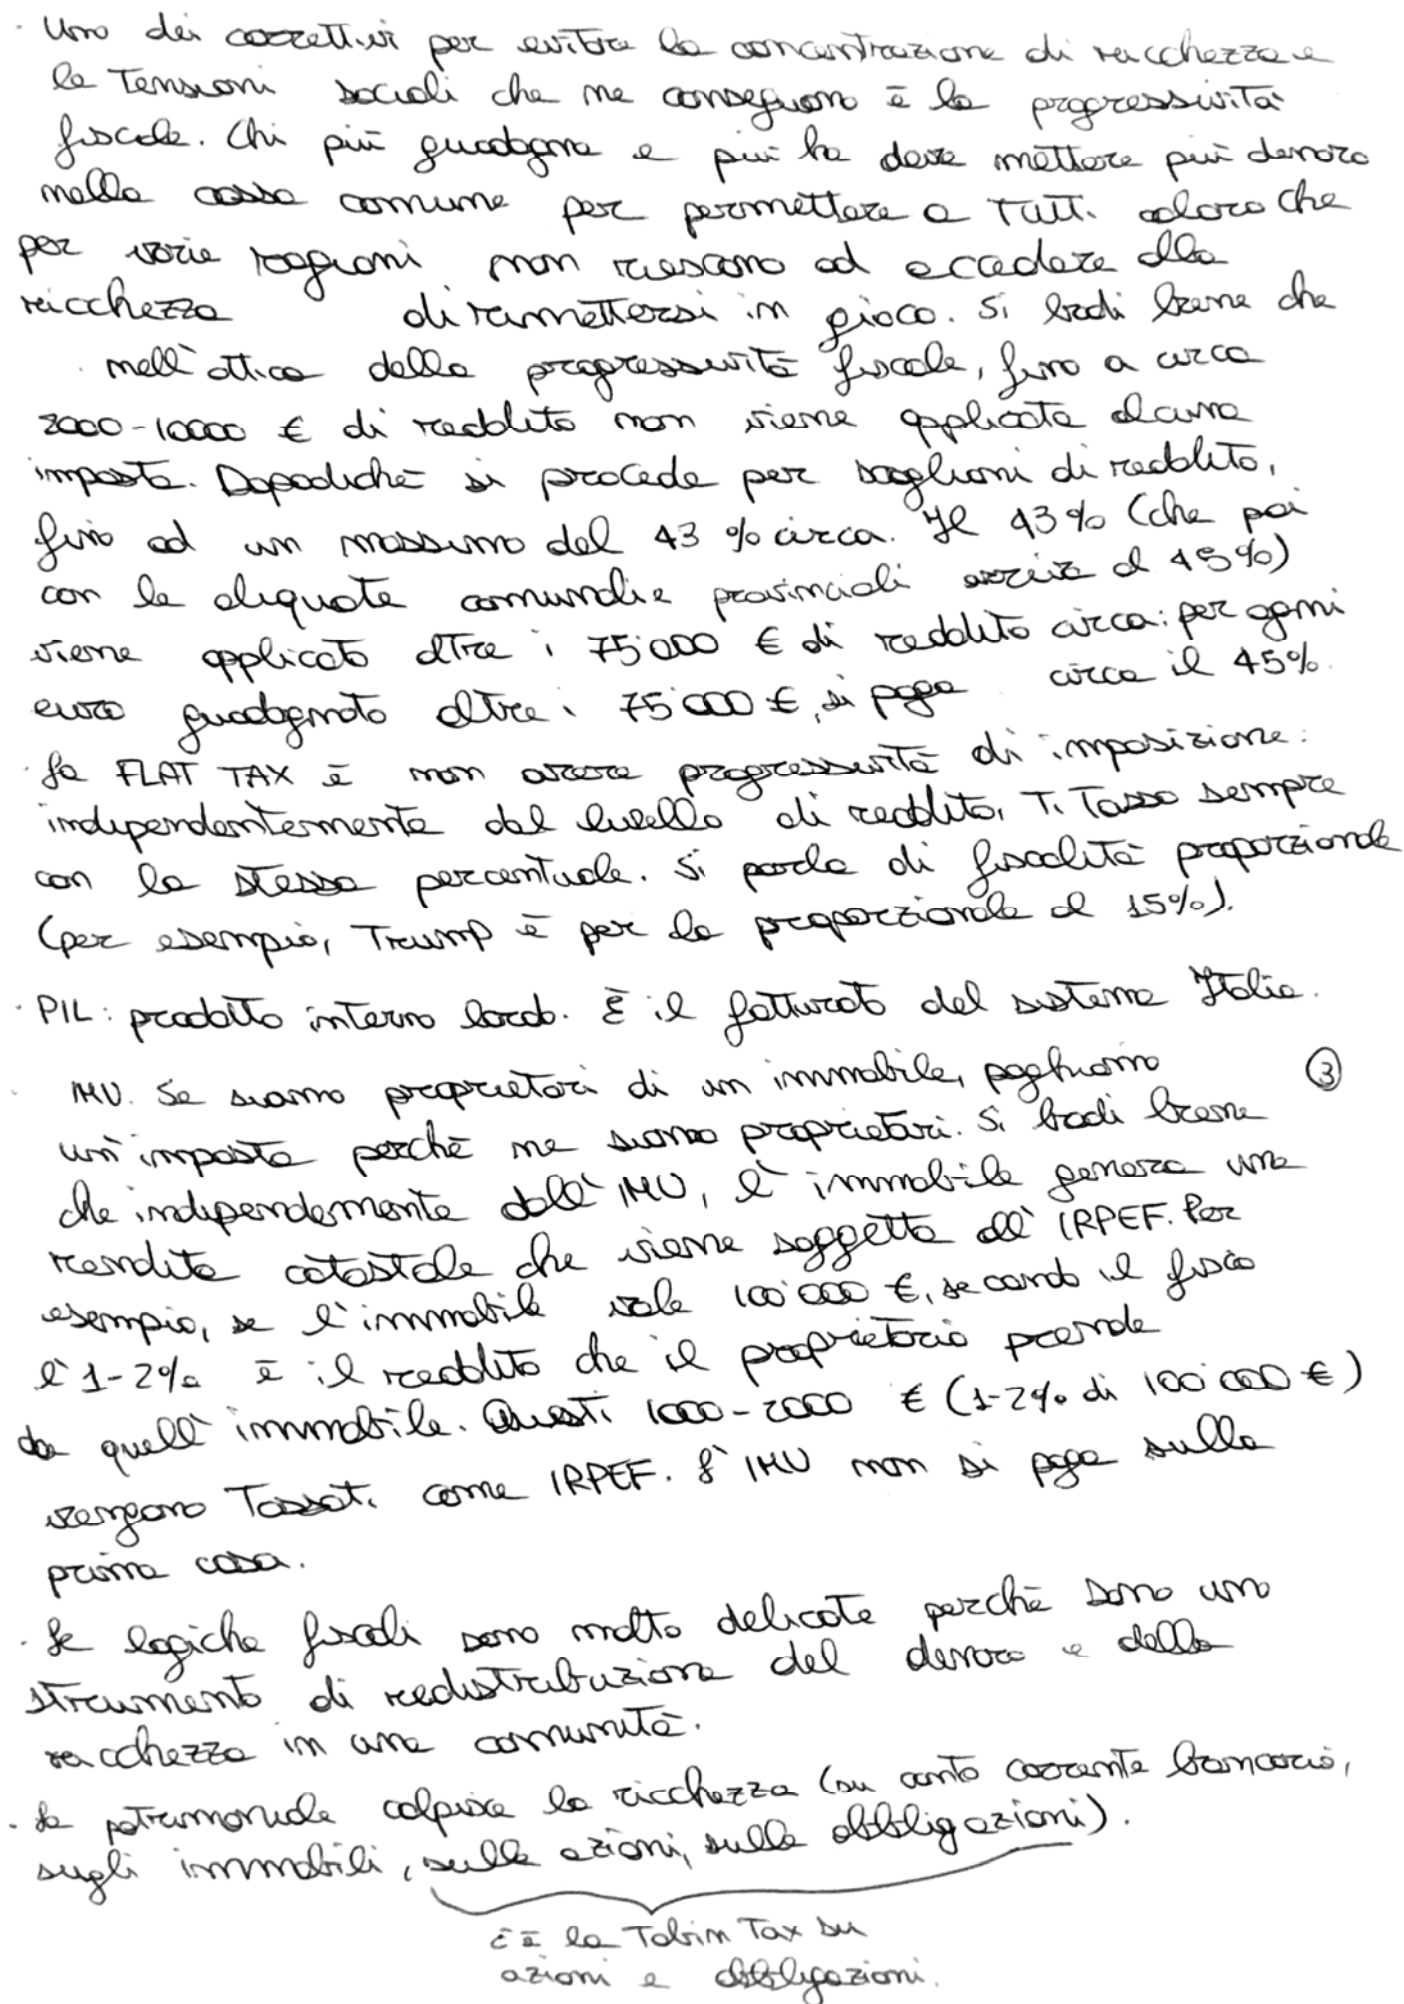 · Uno dei correttivi per evitare la concentrazione di ricchezza e
le tensioni sociali che ne conseguono è la progressività
fiscale. Chi più guadagna e più ha deve mettere più denaro
nella cassa comune per permettere a tutti coloro che
per varie ragioni non riescono ad accedere alla
ricchezza di rimettersi in gioco. Si badi bene che
nell'ottica della progressività fiscale, fino a circa
8000-10000 € di reddito non viene applicata alcuna
imposta. Dopodiché si procede per scaglioni di reddito,
fino ad un massimo del 43 % circa. Il 43 % (che poi
con le aliquote comunali e provinciali arriva al 45%)
viene applicato oltre i 75'000 € di reddito circa: per ogni
euro guadagnato oltre i 75'000 €, si paga circa il 45%.
· La FLAT TAX è non avere progressività di imposizione:
indipendentemente dal livello di reddito, ti tasso sempre
con la stessa percentuale. Si parla di fiscalità proporzionale
(per esempio, Trump è per la proporzionale al 15%).
· PIL: prodotto interno lordo. È il fatturato del sistema Italia.
· IMU. Se siamo proprietari di un immobile, paghiamo ③
un'imposta perché ne siamo proprietari. Si badi bene
che indipendemente dall'IMU, l'immobile genera una
rendita catastale che viene soggetta all'IRPEF. Per
esempio, se l'immobile vale 100'000 €, secondo il fisco
l'1-2% è il reddito che il proprietario prende
da quell'immobile. Questi 1000-2000 € (1-2% di 100'000 €)
vengono tassati come IRPEF. L'IMU non si paga sulla
prima casa.
· Le logiche fiscali sono molto delicate perché sono uno
strumento di redistribuzione del denaro e della
ricchezza in una comunità.
· La patrimoniale colpisce la ricchezza (su conto corrente bancario,
sugli immobili, sulle azioni, sulle obbligazioni).
C'è la Tobin Tax su
azioni e obbligazioni.